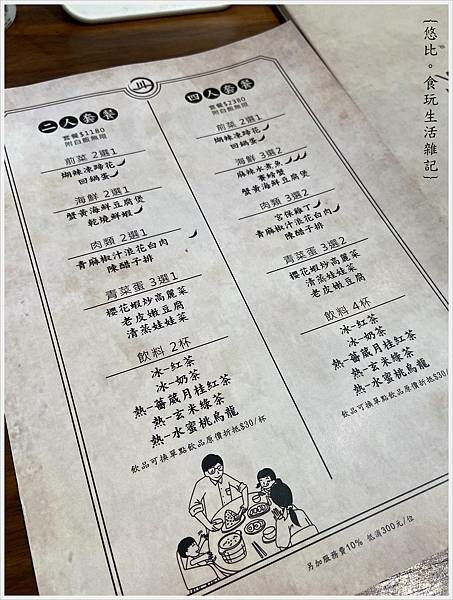 二人套餐
套餐$1180
附白飯無限
前菜 2選1
椒辣凍蹄花
回鍋蛋
海鮮 2選1
蟹黃海鮮豆腐煲
乾燒鮮蝦
肉類 2選1
青麻椒汁浪花白肉
陳醋子排
青菜蛋 3選1
櫻花蝦炒高麗菜
老皮嫩豆腐
清蒸娃娃菜
飲料 2杯
冰-紅茶
冰-奶茶
熱-薔葳月桂紅茶
熱-玄米綠茶
熱-水蜜桃烏龍
飲品可換單點飲品原價折抵$30/杯
四人套餐
套餐$2380
附白飯無限
前菜 2選1
椒辣凍蹄花
回鍋蛋
海鮮 3選2
麻辣水煮魚
賽螃蟹
蟹黃海鮮豆腐煲
肉類 3選2
宮保雞丁
青麻椒汁浪花白肉
陳醋子排
青菜蛋 3選2
櫻花蝦炒高麗菜
清蒸娃娃菜
老皮嫩豆腐
飲料 4杯
冰-紅茶
冰-奶茶
熱-薔葳月桂紅茶
熱-玄米綠茶
熱-水蜜桃烏龍
飲品可換單點飲品原價折抵$30
另加服務費10% 低消300元/位
{悠比。食玩生活雜記}